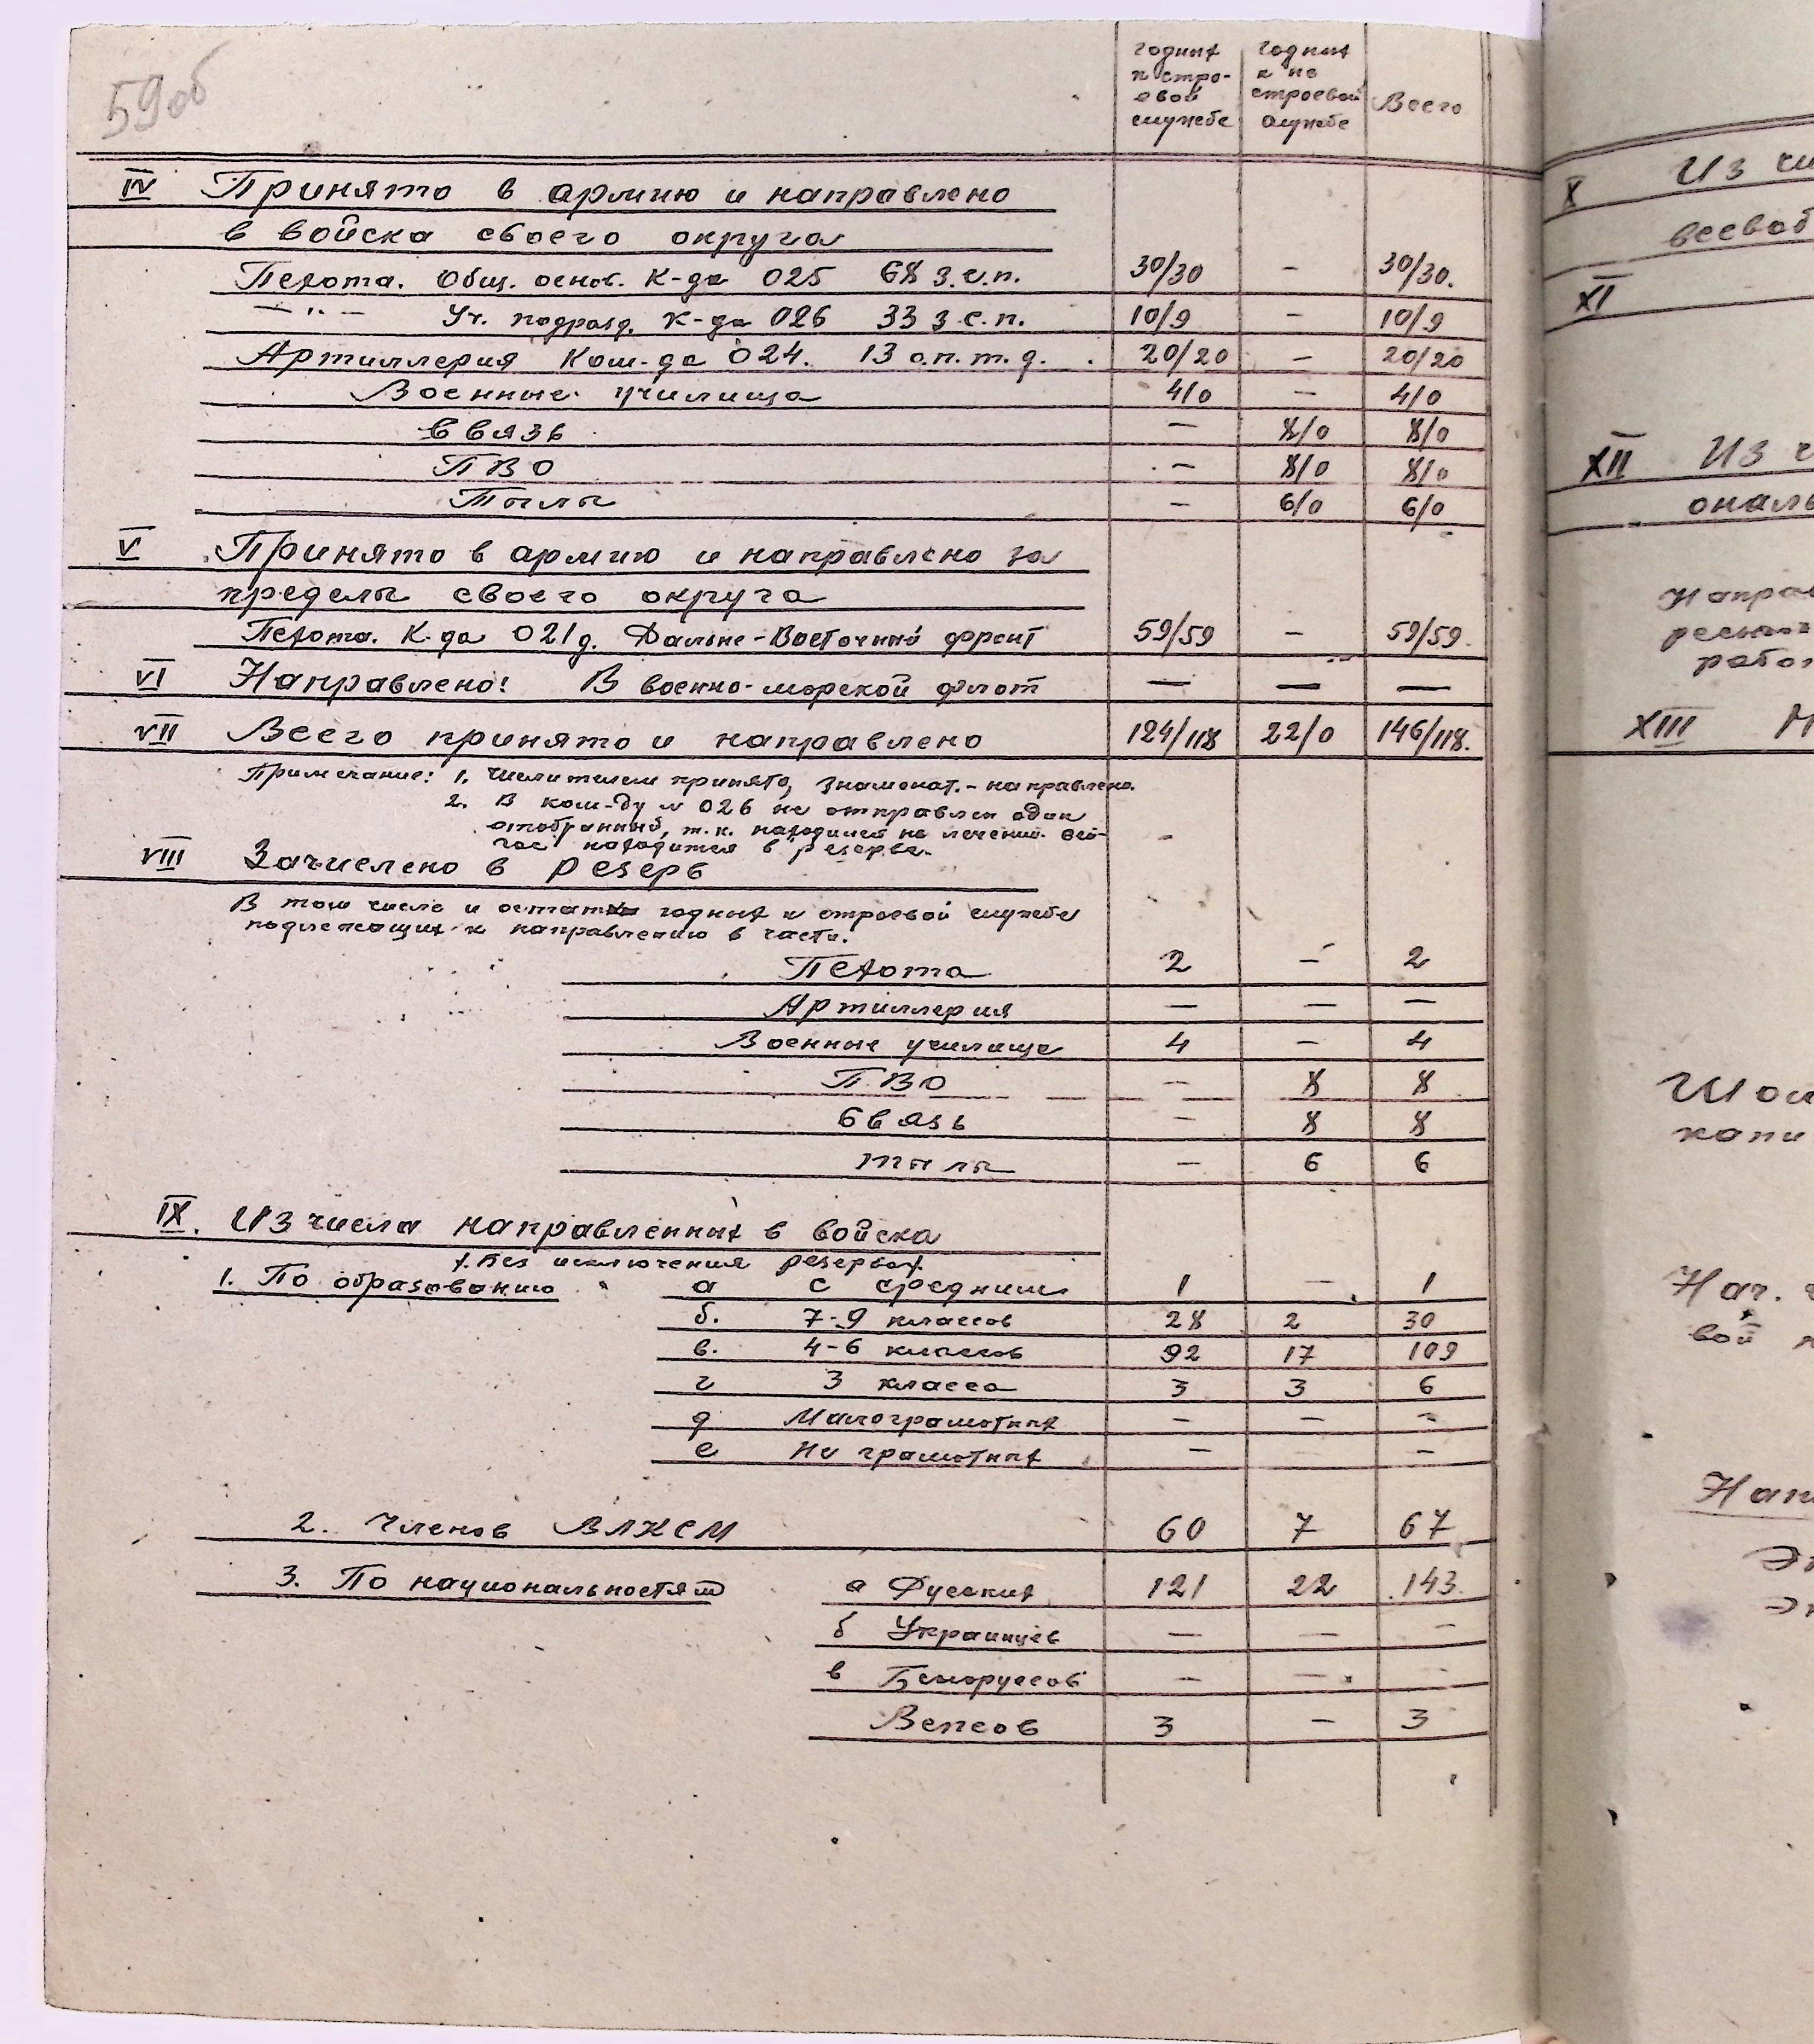 59об
годных к стро-евой службе | годных к не строевой службе | Всего
IV Принято в армию и направлено
в войска своего округа
Пехота. Общ. основ. К-да 025 68 з.с.п. 30/30 – 30/30.
–"– Уч. подразд. К-да 026 33 з.с.п. 10/9 – 10/9
Артиллерия Ком-да 024. 13 о.п.т.д. 20/20 – 20/20
Военные училища 4/0 – 4/0
Связь – 8/0 8/0
ПВО – 8/0 8/0
Тылы – 6/0 6/0
V Принято в армию и направлено за
пределы своего округа
Пехота. К-да 021д. Дальне-Восточный фронт 59/59 – 59/59.
VI Направлено: В военно-морской флот — — —
VII Всего принято и направлено 124/118 22/0 146/118.
Примечание: 1. Числителем принято, знаменат. – направлено.
2. В ком-ду № 026 не отправлен один
отобранный, т.к. находился на лечении. сей-
час находится в резерве.
VIII Зачислено в резерв
В том числе и остатки годных к строевой службе
подлежащих к направлению в части.
Пехота 2 – 2
Артиллерия – – –
Военные училища 4 – 4
ПВО – 8 8
Связь – 8 8
Тылы – 6 6
IX. Из числа направленных в войска
/Без исключения резерва/
1. По образованию а с средним 1 – 1
б. 7-9 классов 28 2 30
в. 4-6 классов 92 17 109
г 3 класса 3 3 6
д Малограмотных – – –
е Не грамотных – – –
2. Членов ВЛКСМ 60 7 67
3. По национальностям а Русских 121 22 143
б Украинцев – – –
в Белоруссов – – –
Вепсов 3 – 3
X Из
XI
XII Из
XIII